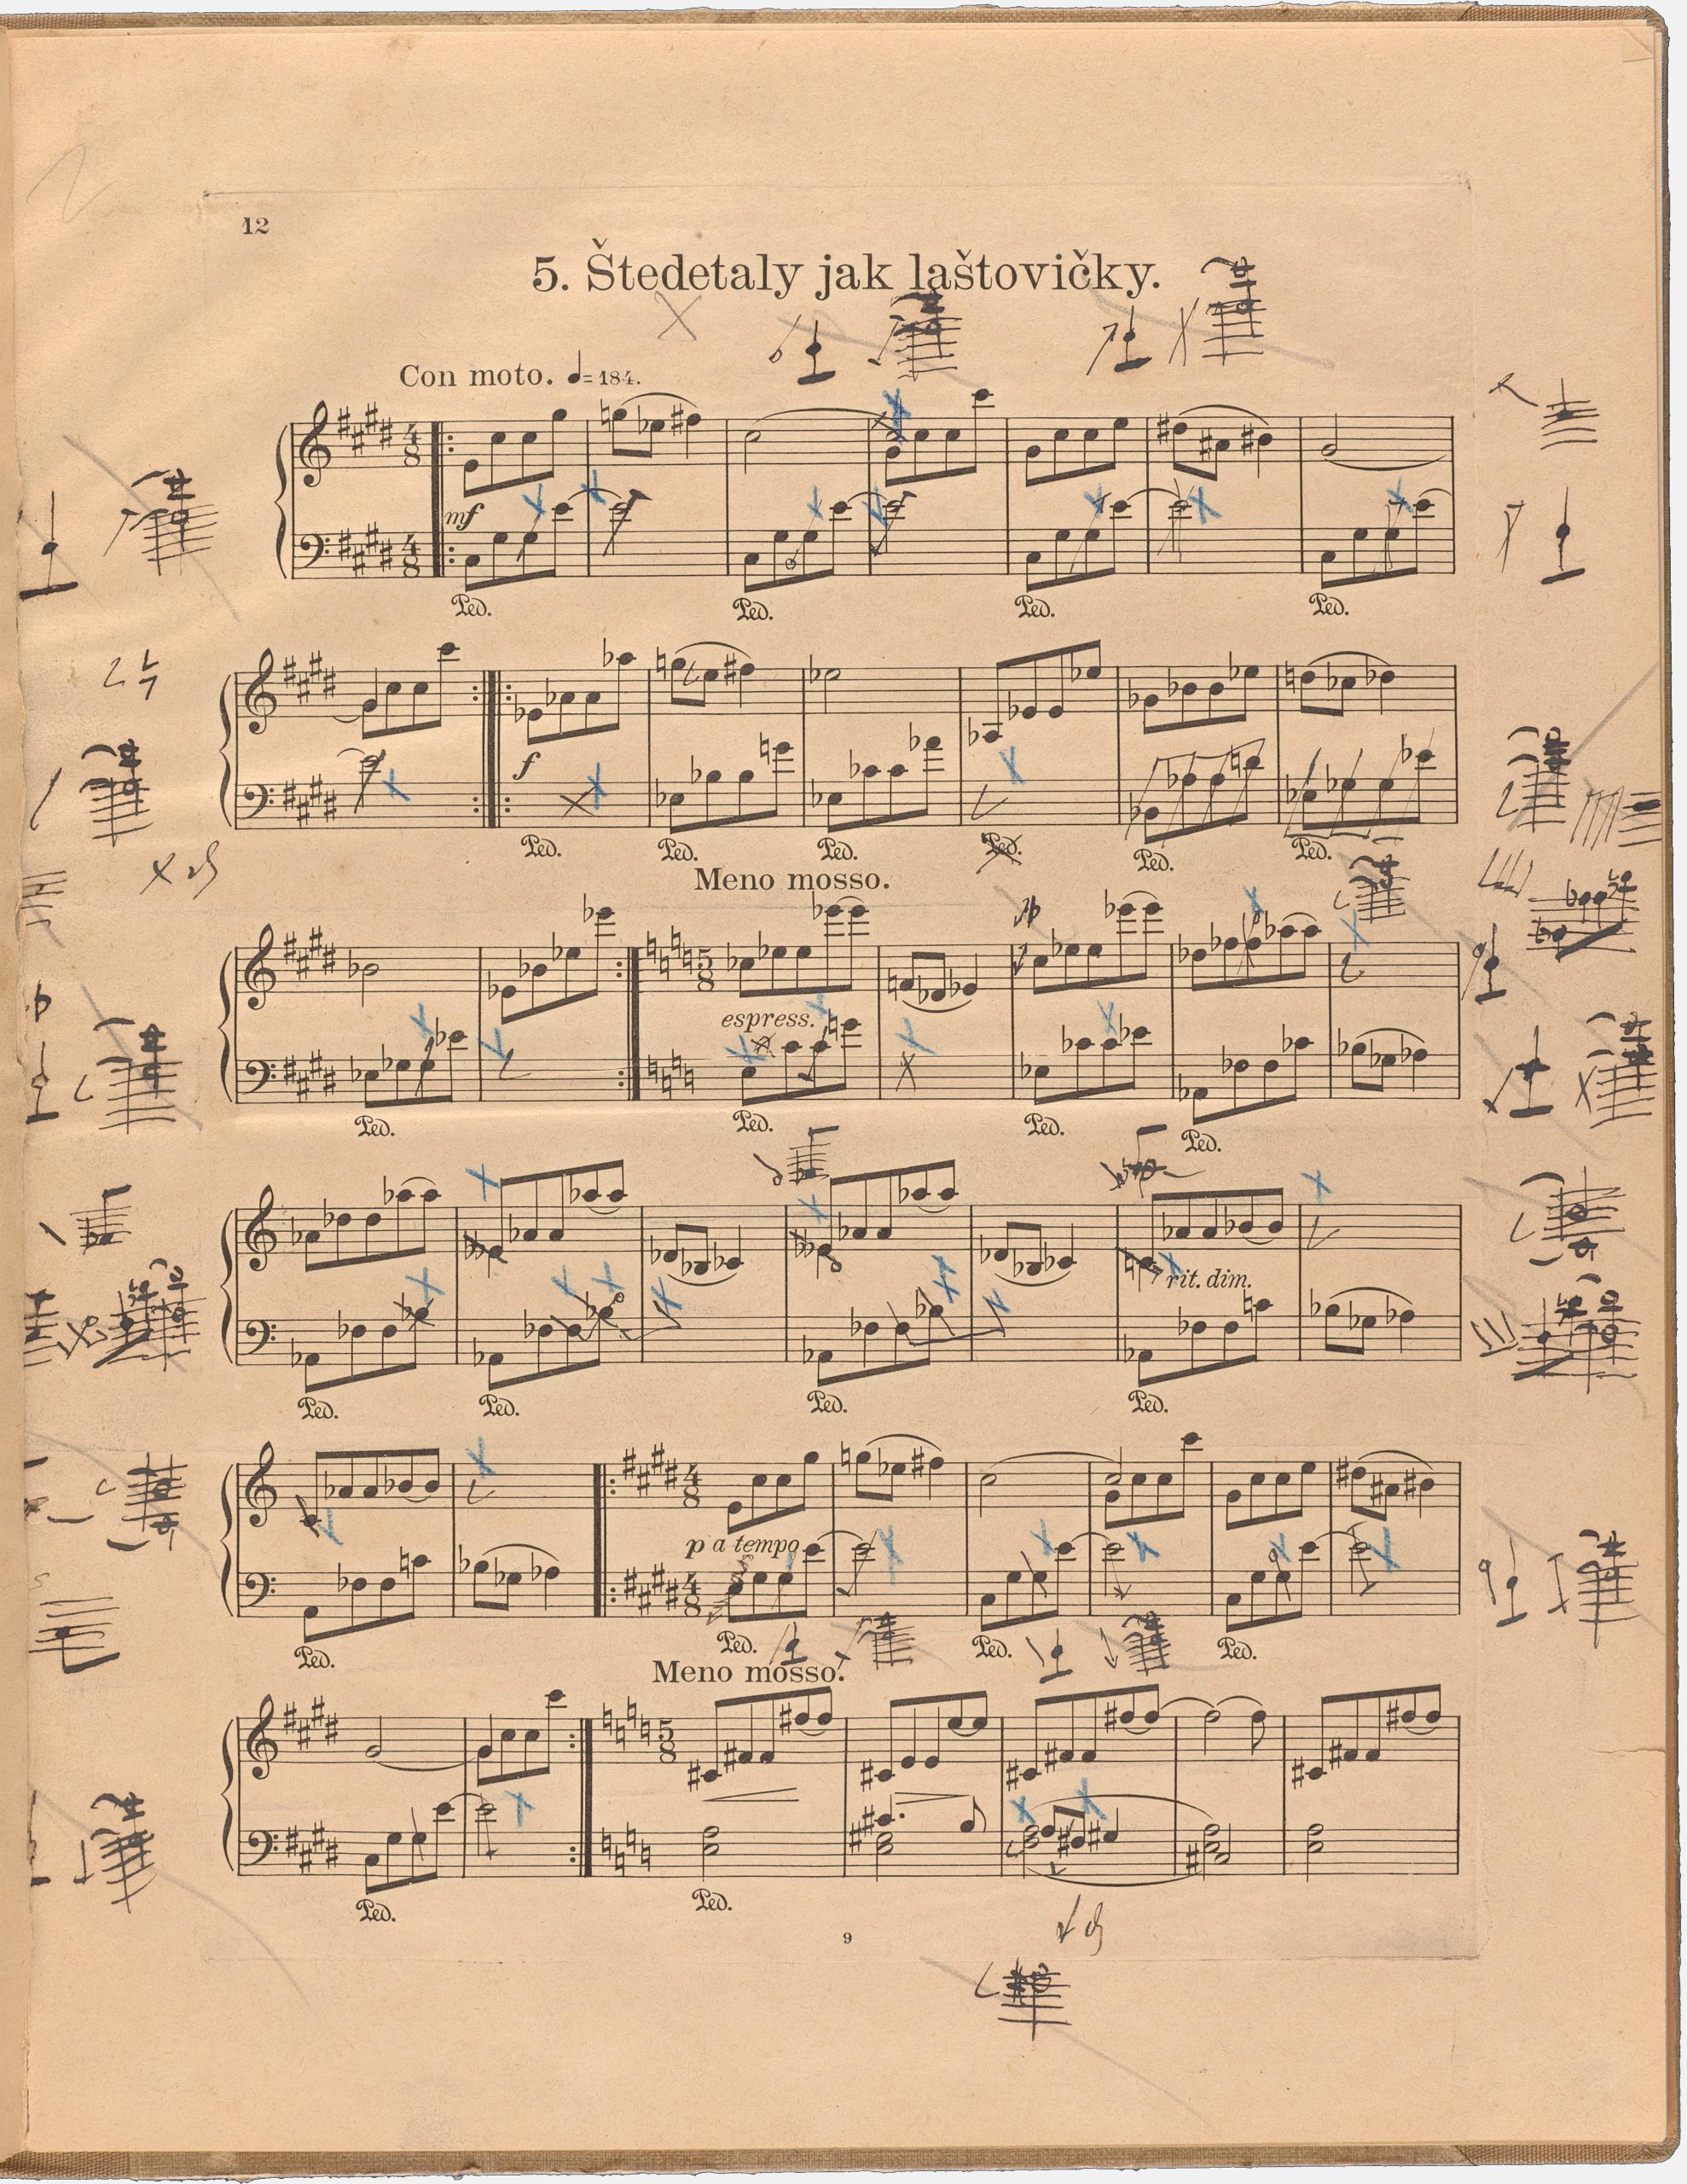 12
5. Štedetaly jak laštovičky.
Con moto. ♩= 184.
4
8
mf
4
8
Ped. Ped. Ped. Ped.
f
Ped. Ped. Ped. Ped. Ped. Ped.
Meno mosso.
5
8
espress.
Ped. Ped. Ped. Ped.
rit. dim.
Ped. Ped. Ped. Ped.
4
8
p a tempo
4
8
Ped. Ped. Ped. Ped.
Meno mosso.
5
8
Ped. Ped.
9